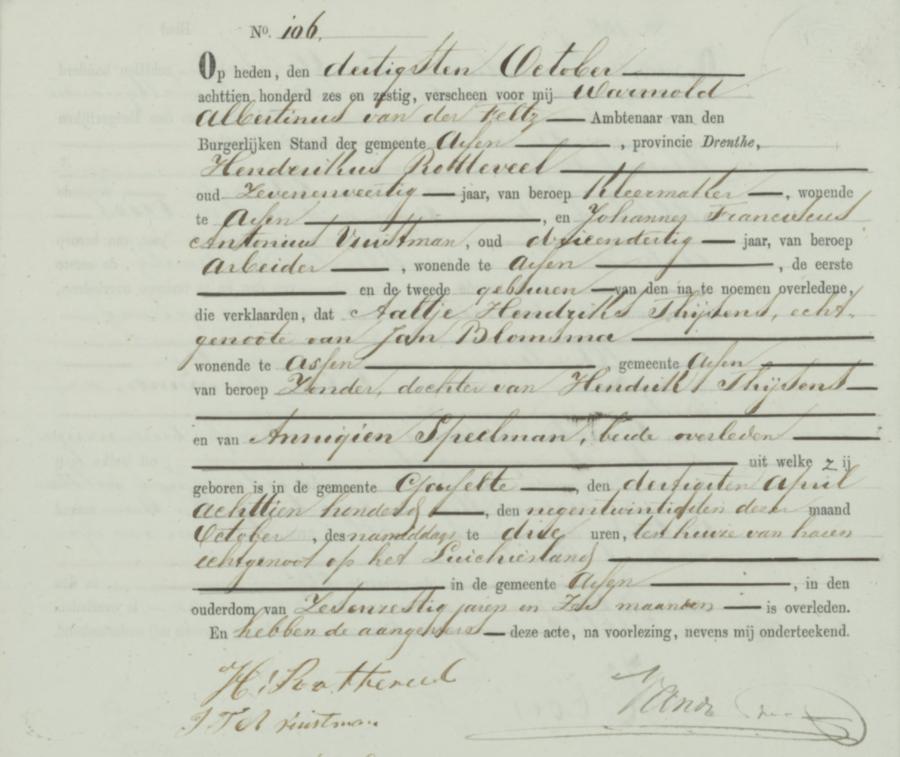 No. 106.
Op heden, den dertigsten October
achttien honderd zes en zestig, verscheen voor mij Warmold
Albertinus van der Feltz Ambtenaar van den
Burgerlijken Stand der gemeente Assen, provincie Drenthe,
Hendrikus Rotteveel
oud Zevenenveertig jaar, van beroep Kleermaker, wonende
te Assen, en Johannes Franciscus
Antonius Vuistman, oud drieendertig jaar, van beroep
Arbeider, wonende te Assen, de eerste
en de tweede geburen van den na te noemen overledene,
die verklaarden, dat Aaltje Hendriks Thijsens, echt-
genoote van Jan Blomsma
wonende te Assen gemeente Assen
van beroep Zonder, dochter van Hendrik Thijsens
en van Annigien Speelman, beide overleden
uit welke zij
geboren is in de gemeente Gasselte, den dertigsten April
achttien honderd, den negentwintigsten dezer maand
October, des namiddags te drie uren, ten huize van haren
echtgenoot op het
in de gemeente Assen, in den
ouderdom van Zesenzestig jaren en Zes maanden is overleden.
En hebben de aangevers deze acte, na voorlezing, nevens mij onderteekend.